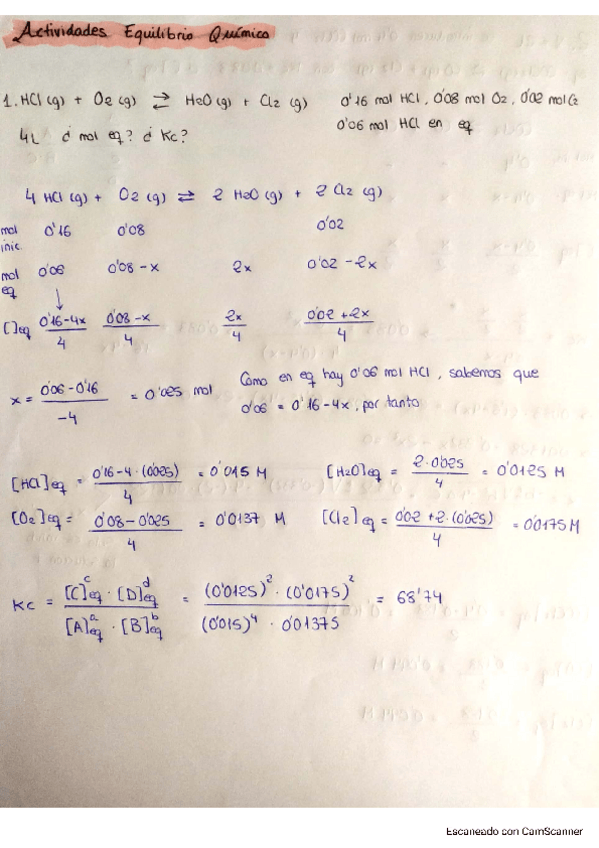 Actividades Equilibrio Químico
1. HCl (g) + O2 (g) ⇄ H2O (g) + Cl2 (g) 0'16 mol HCl, 0'08 mol O2, 0'02 mol Cl2
4L ¿ mol eq? ¿ Kc? 0'06 mol HCl en eq
4 HCl (g) + O2 (g) ⇄ 2 H2O (g) + 2 Cl2 (g)
mol inic 0'16 0'08 0'02
mol eq 0'06 0'08 - x 2x 0'02 - 2x
[ ]eq (0'16-4x)/4 (0'08-x)/4 2x/4 (0'02+2x)/4
x = (0'06 - 0'16)/-4 = 0'025 mol Como en eq hay 0'06 mol HCl, sabemos que
0'06 = 0'16 - 4x, por tanto
[HCl]eq = (0'16 - 4 · (0'025))/4 = 0'015 M [H2O]eq = (2 · 0'025)/4 = 0'0125 M
[O2]eq = (0'08 - 0'025)/4 = 0'0137 M [Cl2]eq = (0'02 + 2 · (0'025))/4 = 0'0175 M
Kc = ([C]eq^c · [D]eq^d)/([A]eq^a · [B]eq^b) = ((0'0125)^2 · (0'0175)^2)/((0'015)^4 · 0'01375) = 68'74
Escaneado con CamScanner